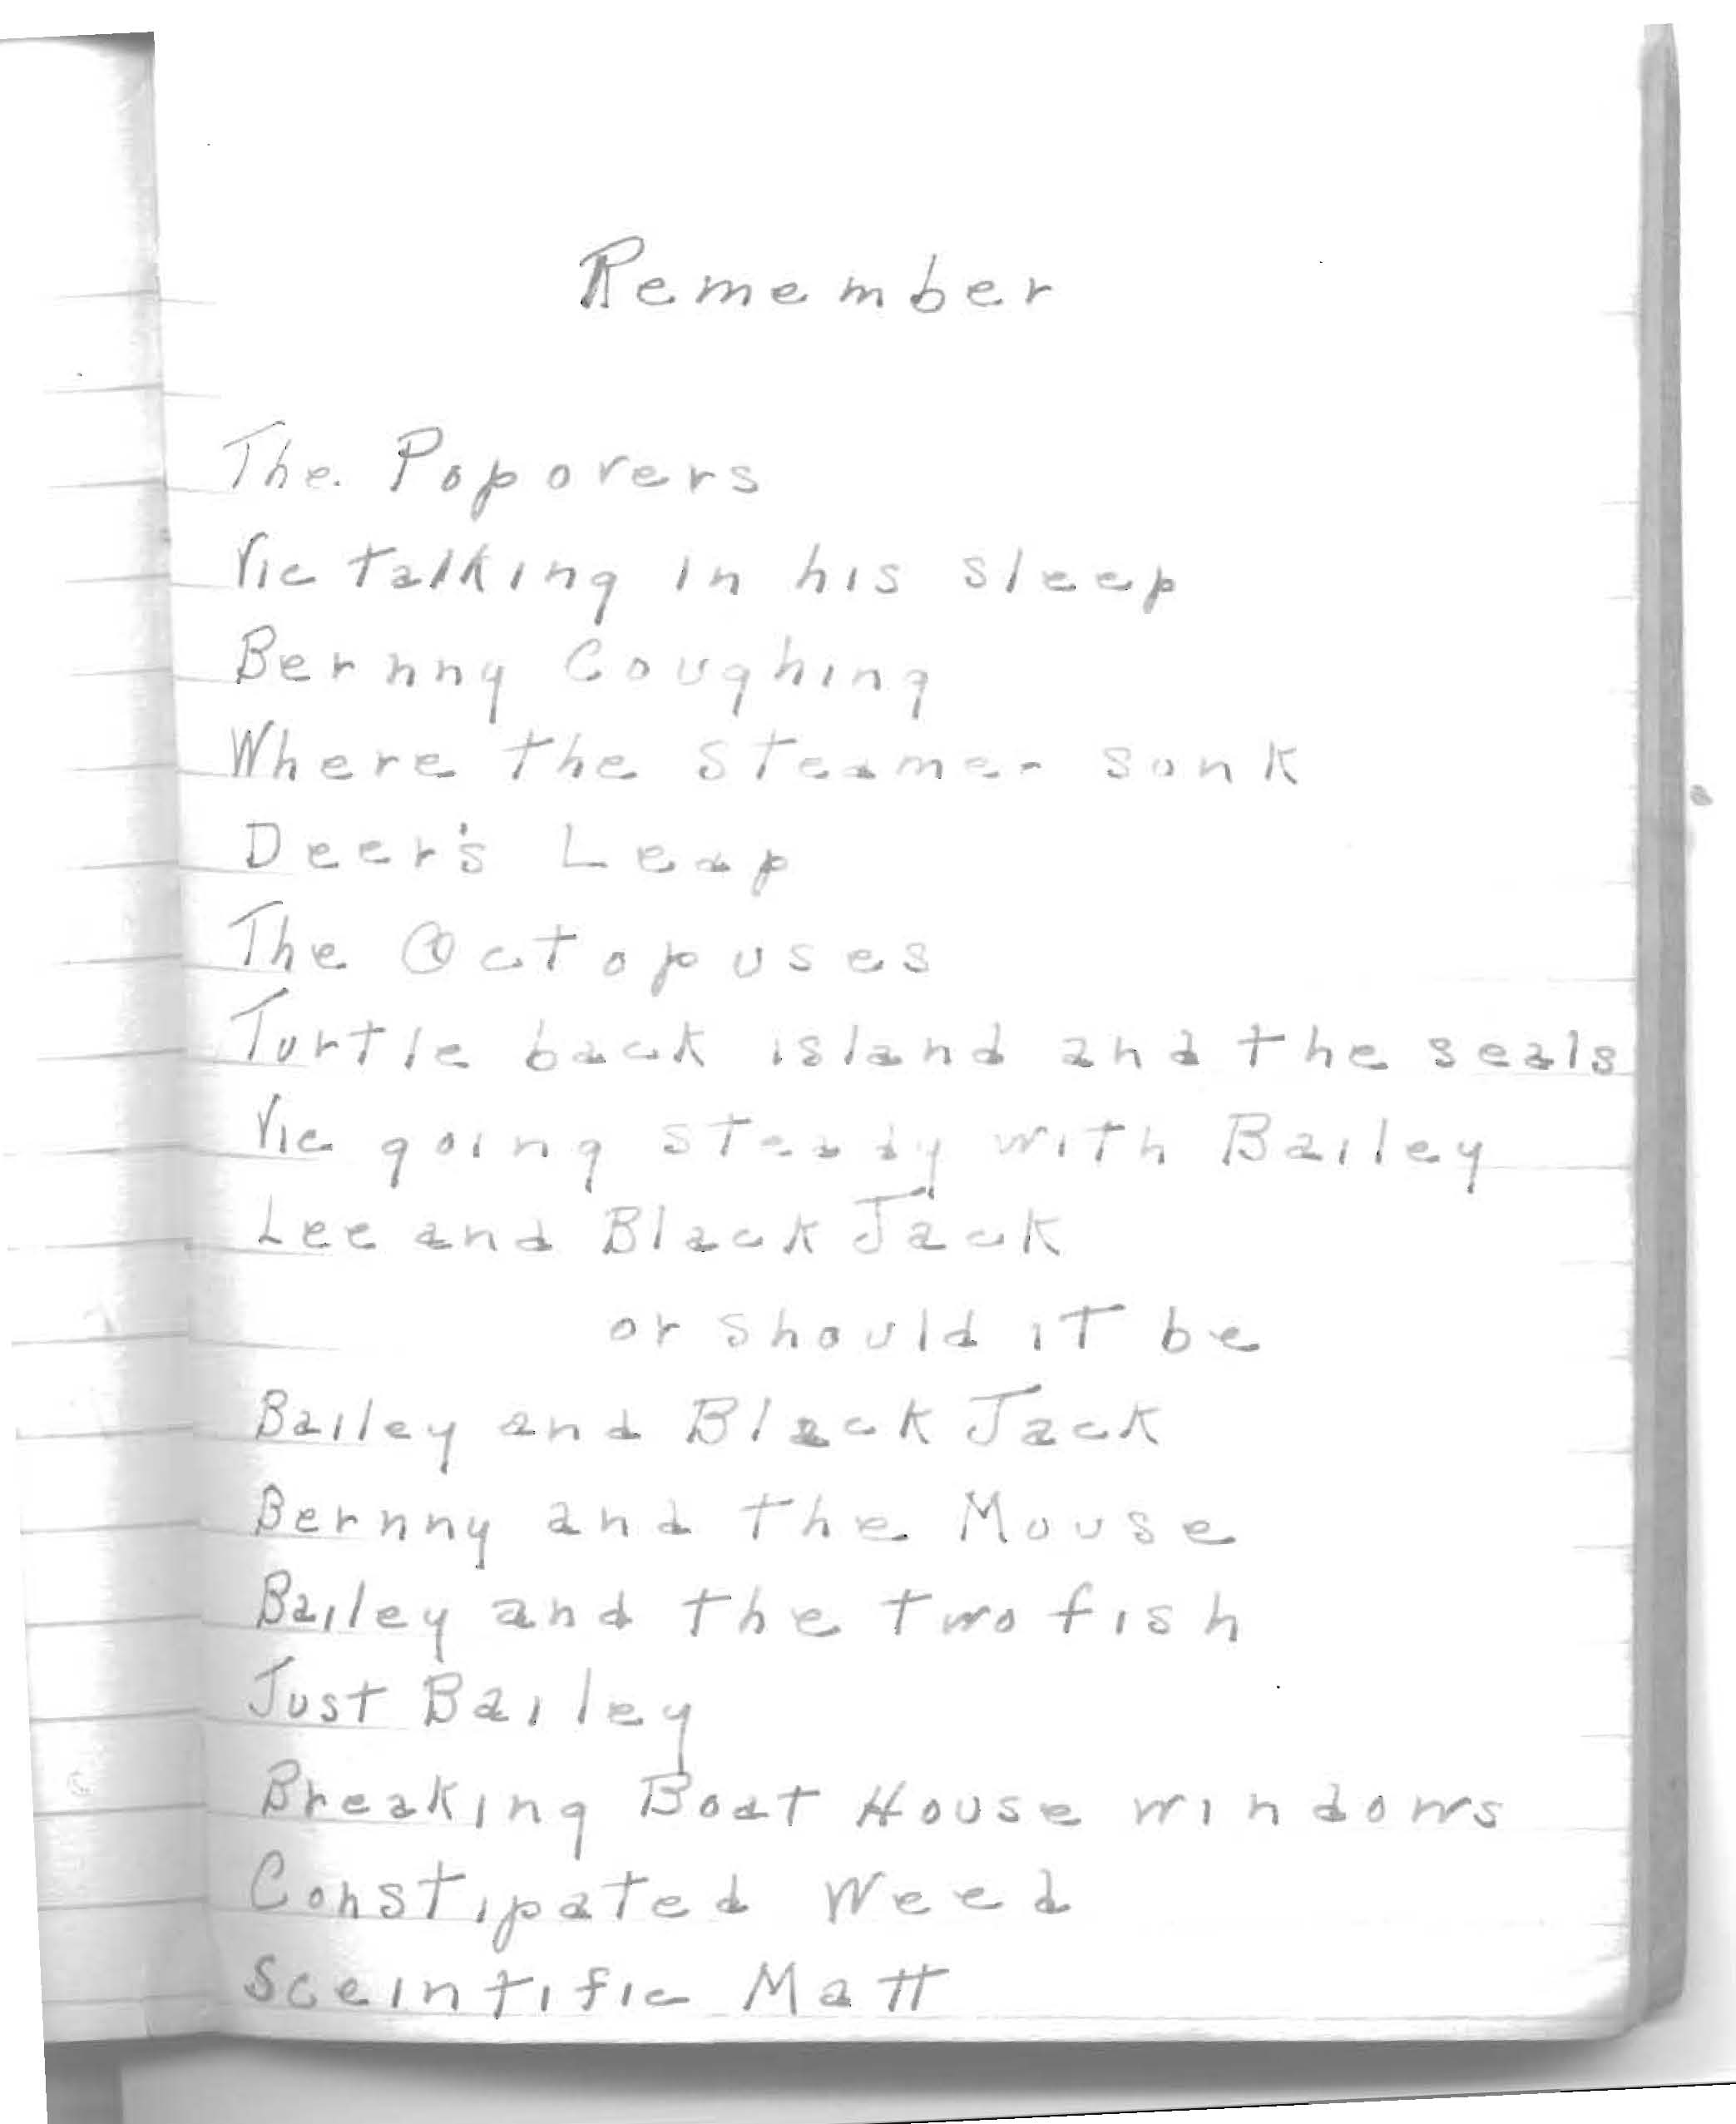 Remember
The Popovers
Vic talking in his sleep
Bernny Coughing
Where the Steamer sunk
Deer's Leap
The Octopuses
Turtle back island and the seals
Vic going steady with Bailey
Lee and Black Jack
or should it be
Bailey and Black Jack
Bernny and the Mouse
Bailey and the two fish
Just Bailey
Breaking Boat House windows
Constipated Weed
Sceintific Matt